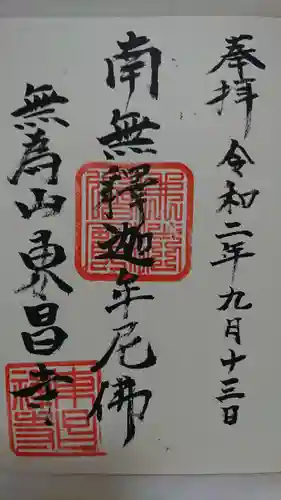 奉拝 令和二年九月十三日
南無釋迦牟尼佛
無為山東昌寺